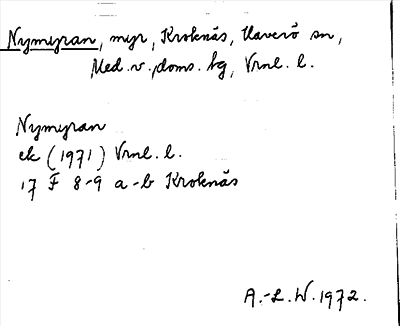 Nymyran, myr, Kroknäs, Haverö sn,
Med.v. doms. fg, Vrnl. l.
Nymyran
ek (1971) Vrnl. l.
17 F 8-9 a-b Kroknäs
A.-L. W. 1972.